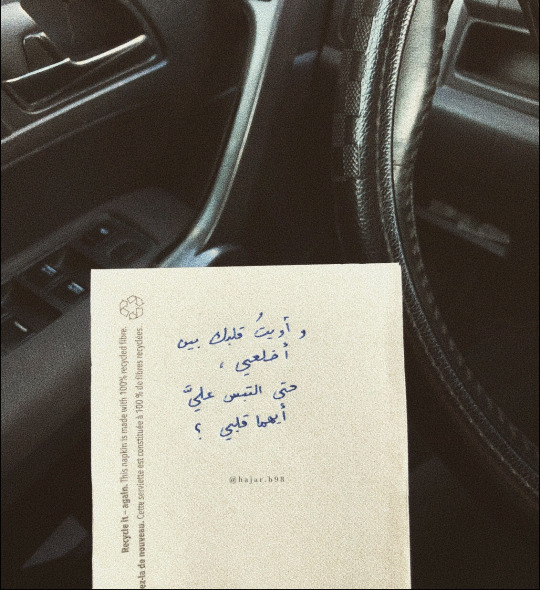 و أويتُ قلبك بين
أضلعي ،
حتى التبس عليَّ
أيهما قلبي ؟
@hajar.h98
Recycle it – again. This napkin is made with 100% recycled fibre.
ez-la de nouveau. Cette serviette est constituée à 100 % de fibres recyclées